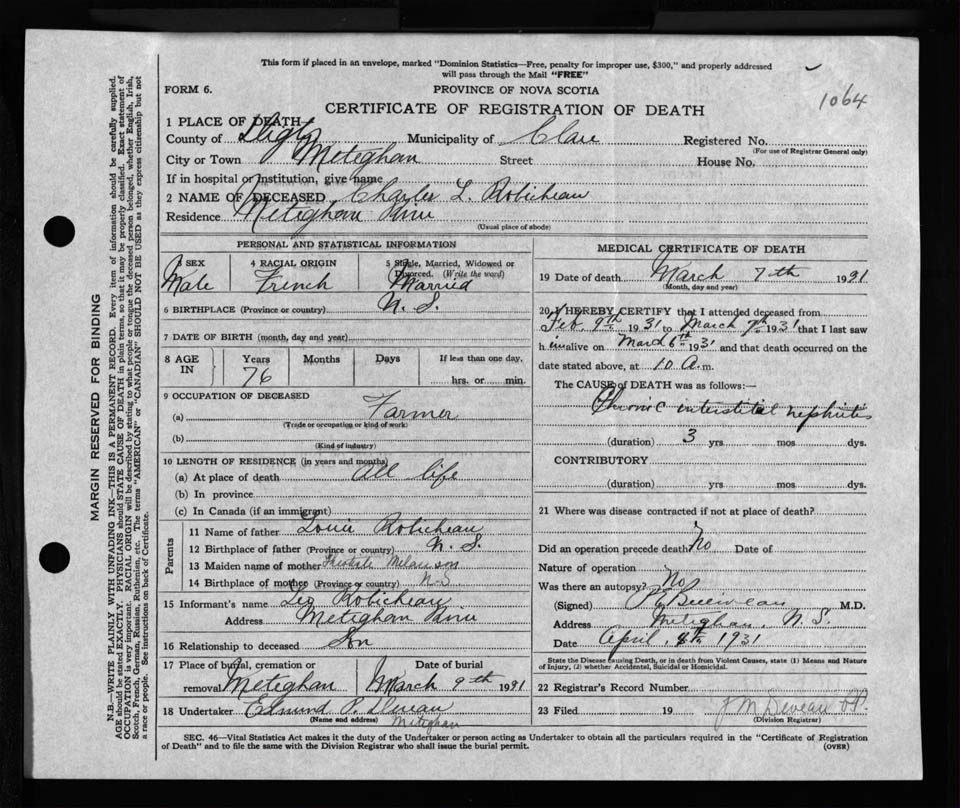 This form if placed in an envelope, marked "Dominion Statistics—Free, penalty for improper use, $300," and properly addressed
will pass through the Mail "FREE"
FORM 6.
PROVINCE OF NOVA SCOTIA
1064
CERTIFICATE OF REGISTRATION OF DEATH
1 PLACE OF DEATH—
County of Digby Municipality of Clare Registered No.
(For use of Registrar General only)
City or Town Meteghan Street House No.
If in hospital or institution, give name
2 NAME OF DECEASED Charles L. Robicheau
Residence Meteghan River
(Usual place of abode)
PERSONAL AND STATISTICAL INFORMATION
3 SEX
Male
4 RACIAL ORIGIN
French
5 Single, Married, Widowed or
Divorced. (Write the word)
Married
6 BIRTHPLACE (Province or country) N. S.
7 DATE OF BIRTH (month, day and year)
8 AGE
IN
Years
76
Months
Days
If less than one day,
hrs. or min.
9 OCCUPATION OF DECEASED
(a) Farmer
(Trade or occupation or kind of work)
(b)
(Kind of industry)
10 LENGTH OF RESIDENCE (in years and months)
(a) At place of death All life
(b) In province
(c) In Canada (if an immigrant)
Parents
11 Name of father Louis Robicheau
12 Birthplace of father (Province or country) N. S.
13 Maiden name of mother Melanson
14 Birthplace of mother (Province or country) N-S
15 Informant's name Leo Robicheau
Address Meteghan River
16 Relationship to deceased Son
17 Place of burial, cremation or
removal Meteghan
Date of burial
March 9th 1931
18 Undertaker Edmund P. Deveau
(Name and address) Meteghan
MEDICAL CERTIFICATE OF DEATH
19 Date of death March 7th 1931
(Month, day and year)
20 I HEREBY CERTIFY that I attended deceased from
Feb. 9th 1931 to March 7th 1931 that I last saw
h im alive on March 6th 1931 and that death occurred on the
date stated above, at 10 A.m.
The CAUSE of DEATH was as follows:—
Chronic interstitial nephritis
(duration) 3 yrs. mos dys.
CONTRIBUTORY
(duration) yrs. mos dys.
21 Where was disease contracted if not at place of death?
Did an operation precede death? No Date of
Nature of operation
Was there an autopsy? No
(Signed) M.D.
Address Meteghan. N. S.
Date April, 8th 1931
State the Disease causing Death, or in death from Violent Causes, state (1) Means and Nature
of Injury, (2) whether Accidental, Suicidal or Homicidal.
22 Registrar's Record Number
23 Filed 19 J M Deveau
(Division Registrar)
SEC. 46—Vital Statistics Act makes it the duty of the Undertaker or person acting as Undertaker to obtain all the particulars required in the "Certificate of Registration
of Death" and to file the same with the Division Registrar who shall issue the burial permit.
(OVER)
MARGIN RESERVED FOR BINDING
N.B.—WRITE PLAINLY WITH UNFADING INK—THIS IS A PERMANENT RECORD. Every item of information should be carefully supplied.
AGE should be stated EXACTLY. PHYSICIANS should STATE CAUSE OF DEATH in plain terms, so that it may be properly classified. Exact statement of
OCCUPATION is very important. RACIAL ORIGIN will be described by stating to what people or tongue the deceased person belonged, whether English, Irish,
Scotch, French, German, Russian, Ruthenian, etc. The terms "AMERICAN" or "CANADIAN" SHOULD NOT BE USED as they express citizenship but not
a race or people. See instructions on back of Certificate.